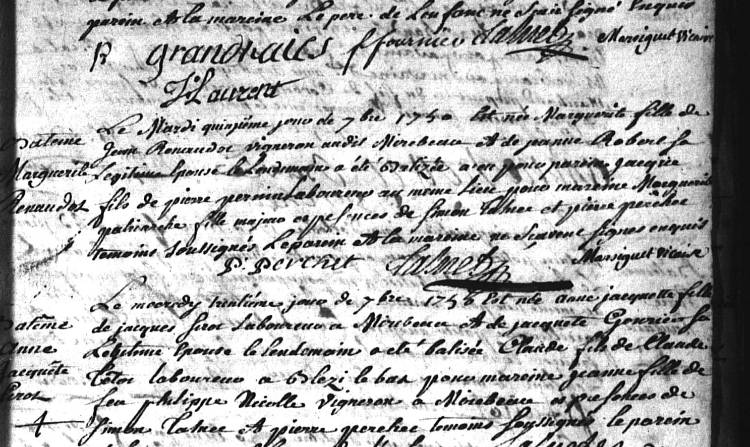 parein et la mareine Le pere de Lenfant ne Scait signé Enquis
P grandhaies f fournier Massiguet vicaire
J:Laurent
Le Mardi quinzieme jour de 7bre 1750 Est née Marguerite fille de
Bateme Jean Renaudot vigneron audit Mirebeau et de jeanne Robert sa
Marguerite Legitime Epouse le Lendemain a été Batizée a eu pour parein jacque
Renaudot fils de pierre perrein Laboureur au meme Lieu pour mareine Marguerite
fille majeur en presences de Simon et pierre perchet
temoins soussignés Le parein et la mareine ne Scavent signes enquis
P: Perchet Massiguet vicaire
Le mecredy trentieme jour de 7bre 175 Est née anne jacquette fille
Bateme de jacques Sirot Laboureur a Mirebeau et de jacquete sa
Anne Legitime Epouse le lendemain a eté batisée Claude fils de Claude
jacquete laboureur a Blezi le bas pour mareine jeanne fille de
Sirot feu philippe Nicolle vigneron a Mirebeau en presences de
Simon et pierre perchet temoins Soussignés le parein